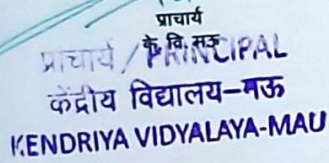 प्राचार्य
के. वि. मऊ
प्राचार्य / PRINCIPAL
केंद्रीय विद्यालय–मऊ
KENDRIYA VIDYALAYA-MAU